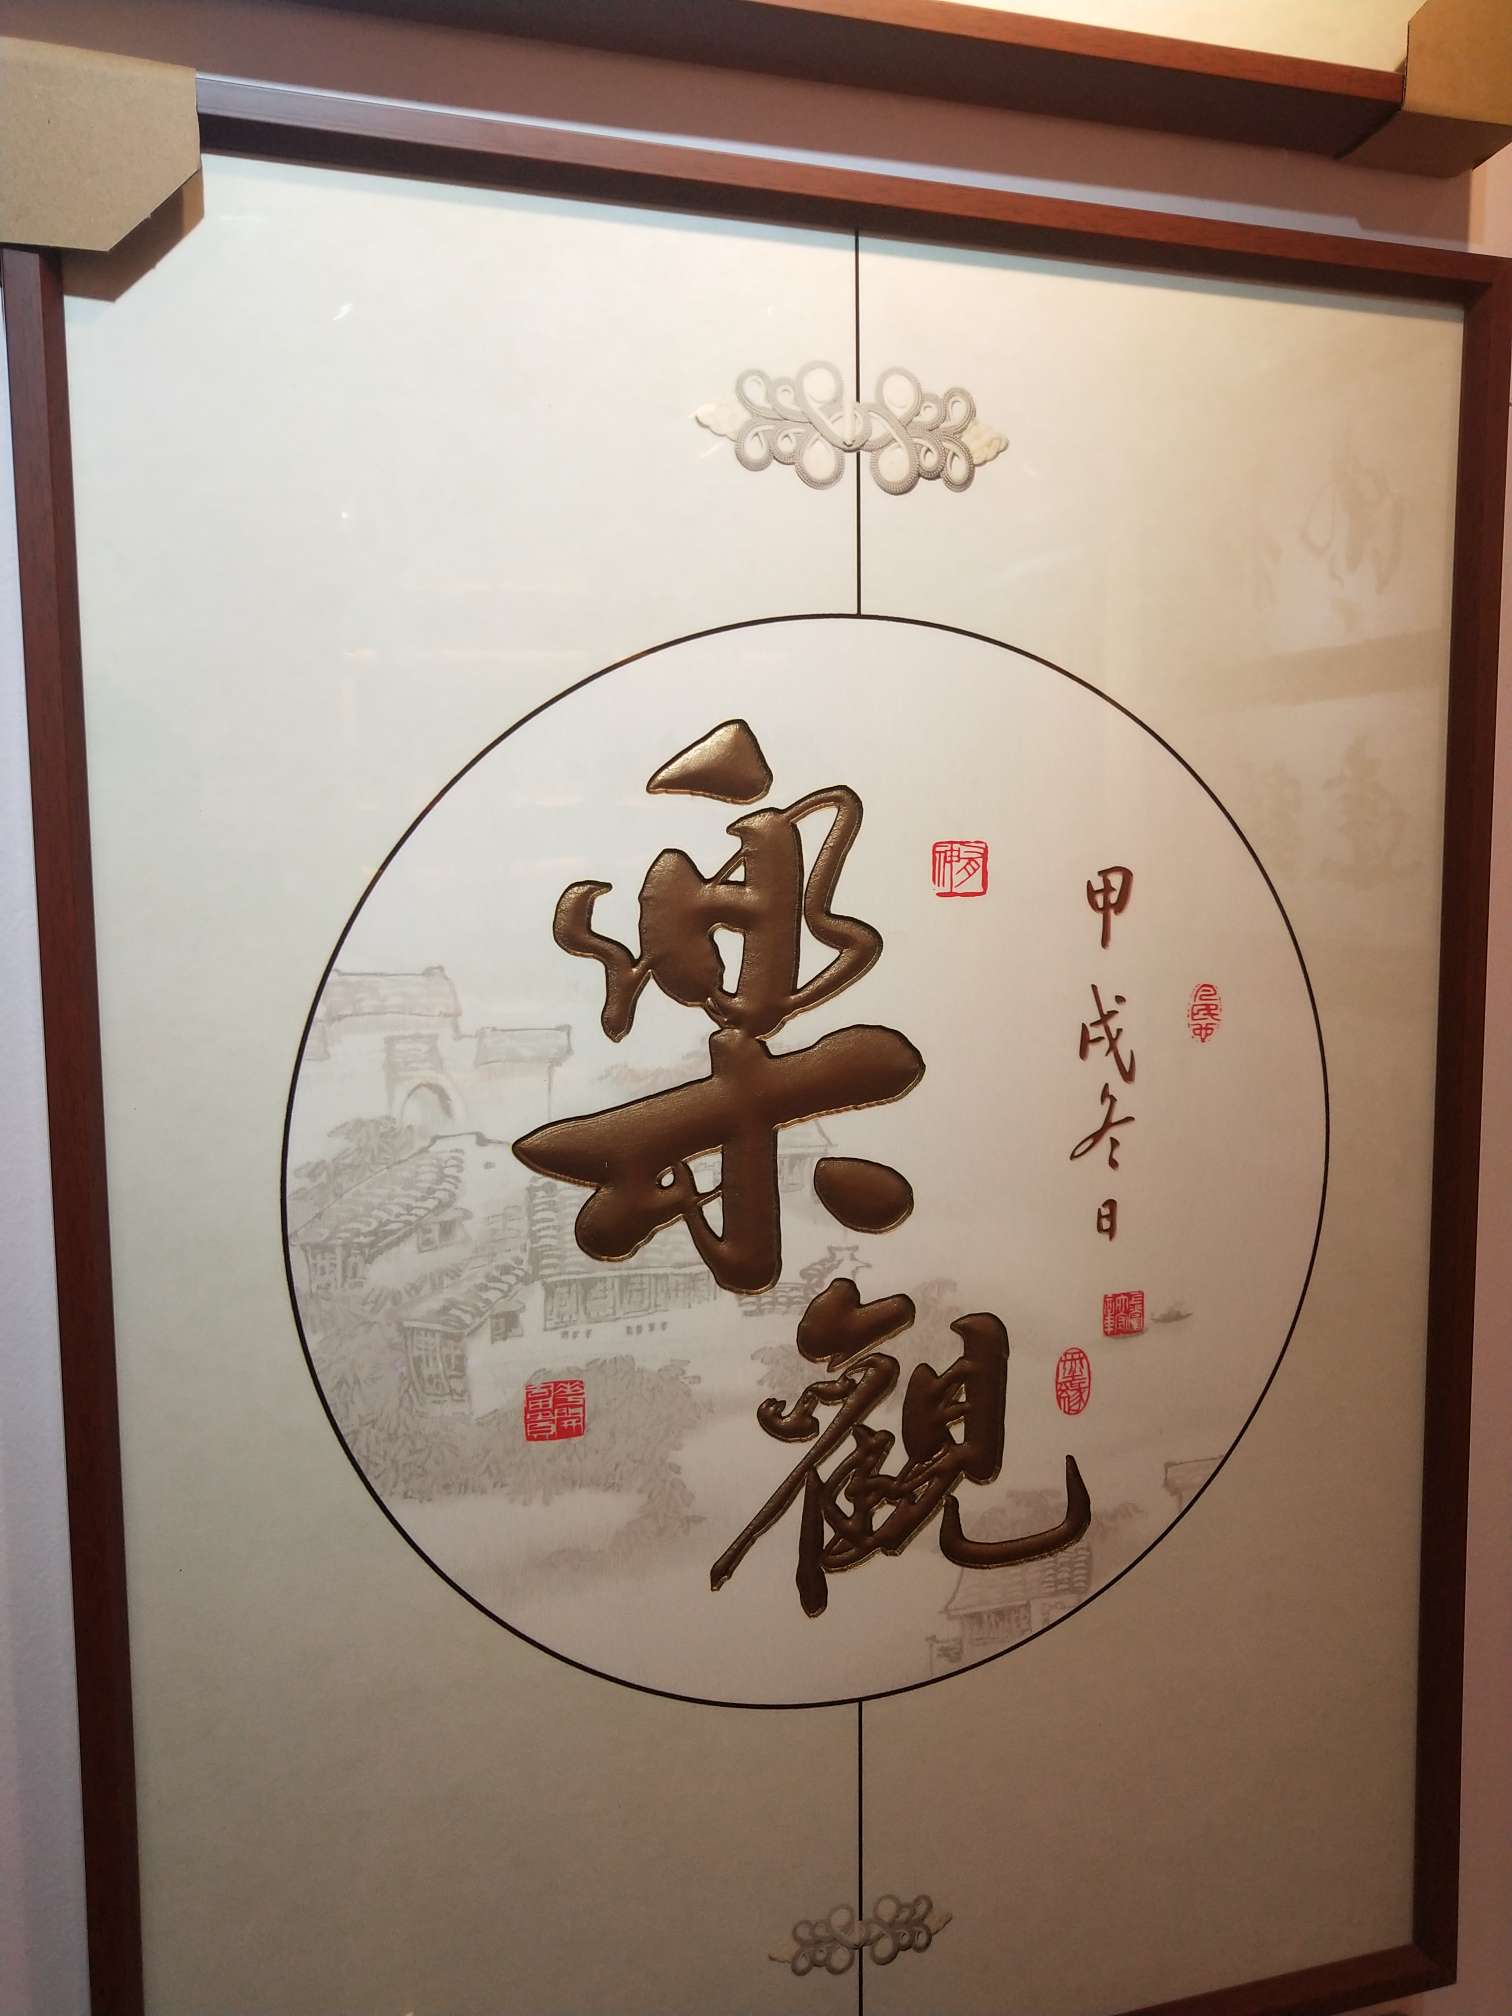 樂觀
甲戌冬日